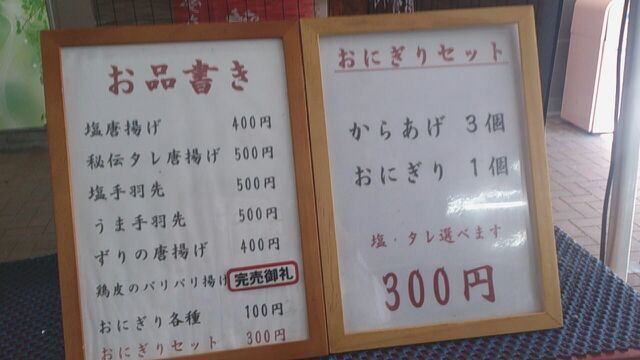 お品書き
塩唐揚げ 400円
秘伝タレ唐揚げ 500円
塩手羽先 500円
うま手羽先 500円
ずりの唐揚げ 400円
鶏皮のパリパリ揚げ 完売御礼
おにぎり各種 100円
おにぎりセット 300円
おにぎりセット
からあげ 3個
おにぎり 1個
塩・タレ選べます
300円